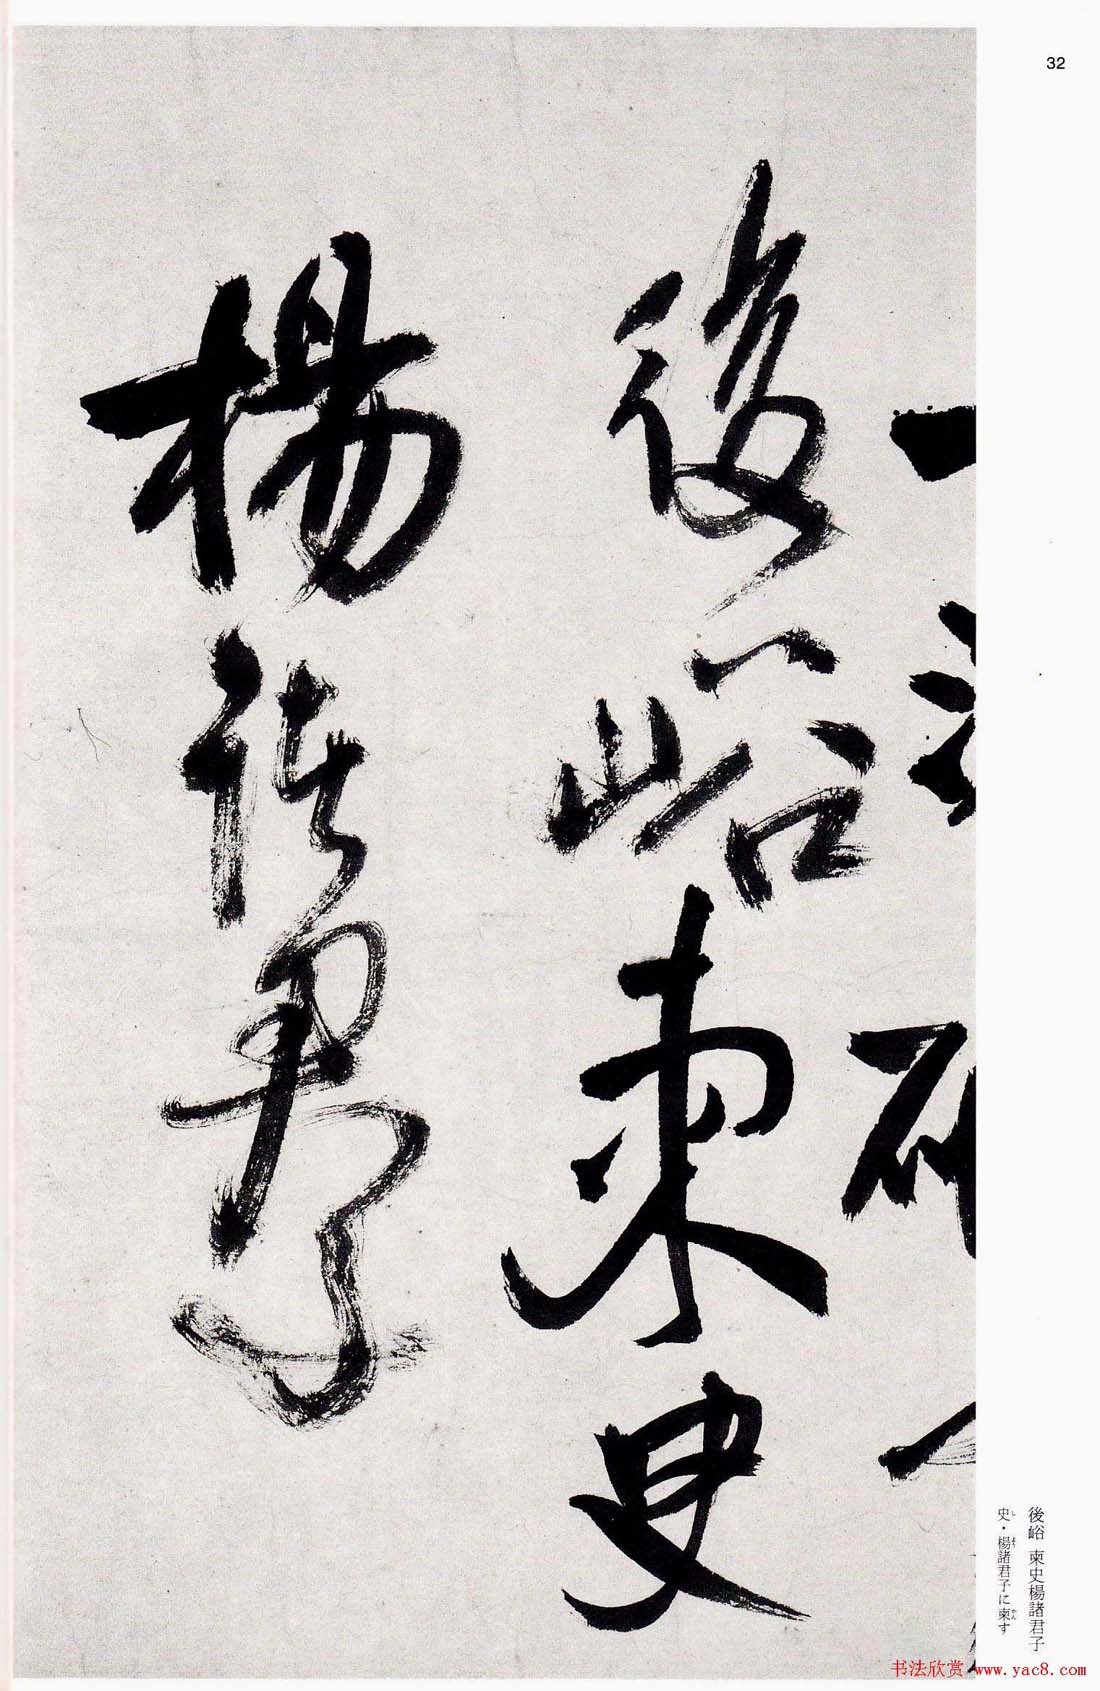 32
後峪柬史
楊諸君子
後峪 柬史楊諸君子
史・楊諸君子に柬す
书法欣赏 www.yac8.com